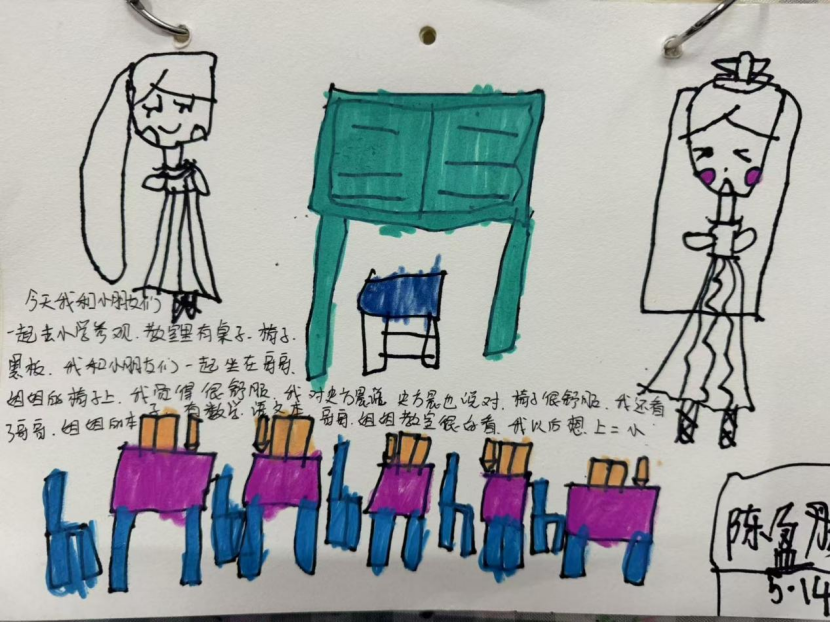 今天我和小朋友们
一起去小学参观.教室里有桌子.椅子.
黑板.我和小朋友们一起坐在哥哥.
姐姐的椅子上.我觉得很舒服.我对史方晨说 史方晨也说对.椅子很舒服.我还看
了哥哥.姐姐的本子.有数学.语文本.哥哥.姐姐教室很好看.我以后想上二小
陈盈
5·14